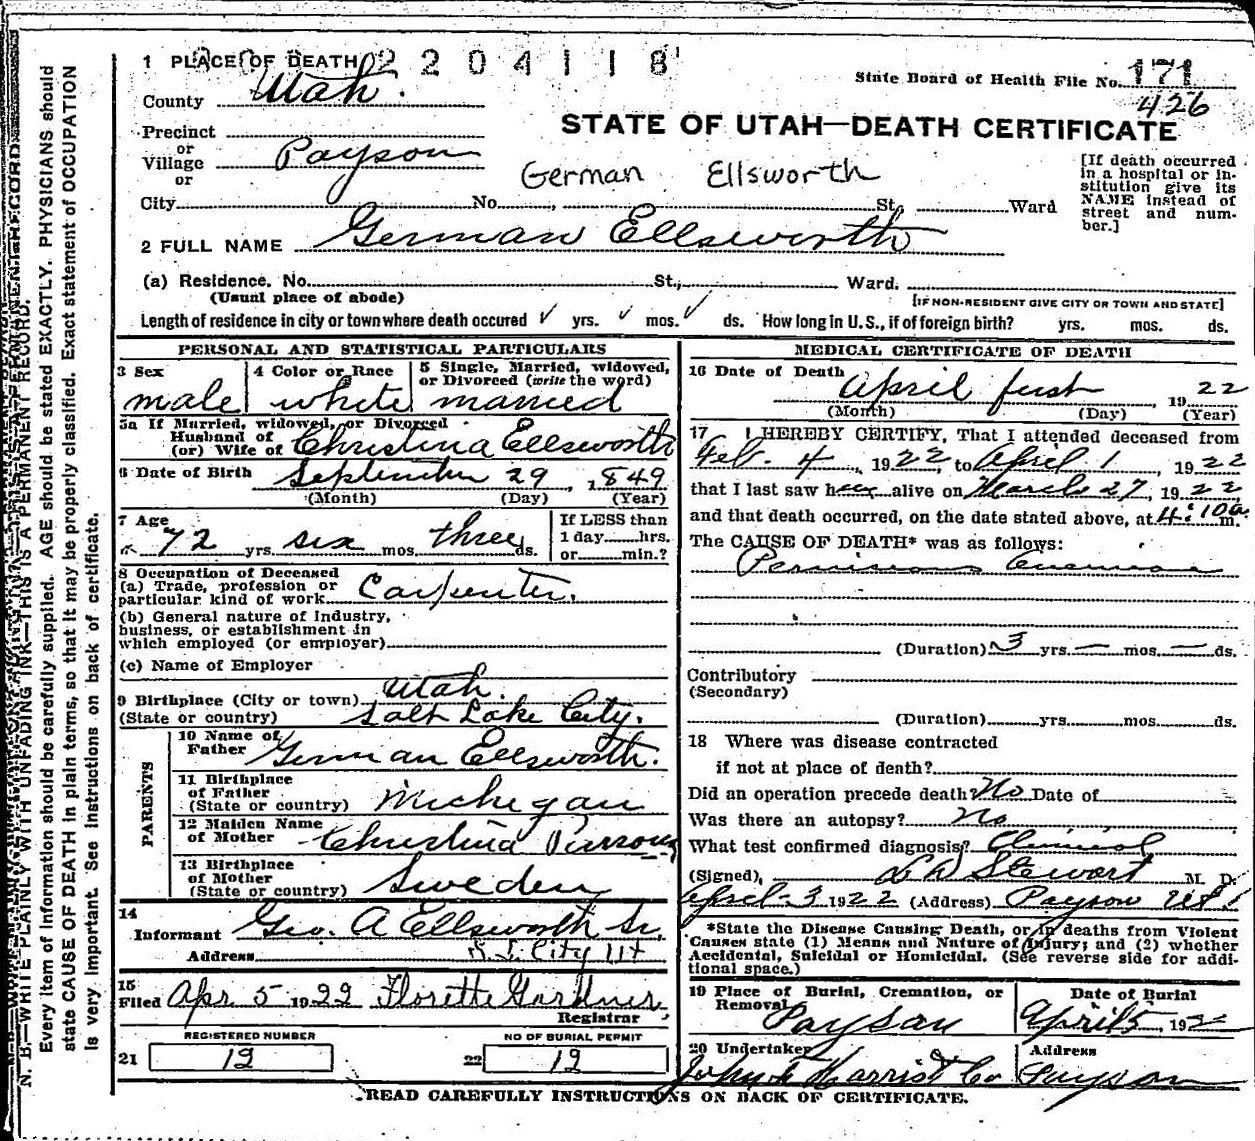 1 PLACE OF DEATH 2204118
County Utah.
State Board of Health File No. 171
426
STATE OF UTAH—DEATH CERTIFICATE
Precinct
or
Village Payson
or
German Ellsworth
[If death occurred in a hospital or institution give its NAME instead of street and number.]
City No. , St. Ward
2 FULL NAME German Ellsworth
(a) Residence. No. St., Ward.
(Usual place of abode) [IF NON-RESIDENT GIVE CITY OR TOWN AND STATE]
Length of residence in city or town where death occured ✓ yrs. ✓ mos. ✓ ds. How long in U. S., if of foreign birth? yrs. mos. ds.
PERSONAL AND STATISTICAL PARTICULARS
3 Sex
male
4 Color or Race
white
5 Single, Married, widowed, or Divorced (write the word)
married
5a If Married, widowed, or Divorced
Husband of
(or) Wife of Christina Ellsworth
6 Date of Birth September 29, 1849
(Month) (Day) (Year)
7 Age
72 yrs. six mos. three ds.
If LESS than
1 day hrs.
or min.?
8 Occupation of Deceased
(a) Trade, profession or
particular kind of work Carpenter.
(b) General nature of Industry,
business, or establishment in
which employed (or employer)
(c) Name of Employer
9 Birthplace (City or town) Utah.
(State or country) Salt Lake City.
PARENTS
10 Name of
Father German Ellsworth.
11 Birthplace
of Father
(State or country) Michegan
12 Maiden Name
of Mother Christina
13 Birthplace
of Mother
(State or country) Sweden
14
Informant Geo. A Ellsworth Sr.
Address City Ut
15
Filed Apr. 5 1922 Florette Gardner
Registrar
REGISTERED NUMBER
21 12
NO OF BURIAL PERMIT
22 12
MEDICAL CERTIFICATE OF DEATH
16 Date of Death April first 1922
(Month) (Day) (Year)
17 I HEREBY CERTIFY, That I attended deceased from
Feb. 4, 1922, to April 1, 1922
that I last saw h alive on March 27, 1922,
and that death occurred, on the date stated above, at 4:10a m.
The CAUSE OF DEATH* was as follows:
Pernicious Anemia
(Duration) 3 yrs. — mos. — ds.
Contributory
(Secondary)
(Duration) yrs. mos. ds.
18 Where was disease contracted
if not at place of death?
Did an operation precede death No Date of
Was there an autopsy? No
What test confirmed diagnosis? Clinical
(Signed) Stewart M. D.
April 3 1922 (Address) Payson Ut.
*State the Disease Causing Death, or in deaths from Violent
Causes state (1) Means and Nature of Injury; and (2) whether
Accidental, Suicidal or Homicidal. (See reverse side for addi-
tional space.)
19 Place of Burial, Cremation, or
Removal Payson
Date of Burial
April 5, 192
20 Undertaker
Harris & Co
Address
Payson
READ CAREFULLY INSTRUCTIONS ON BACK OF CERTIFICATE.
N. B.—WRITE PLAINLY WITH UNFADING INK—THIS IS A PERMANENT RECORD.
Every item of information should be carefully supplied. AGE should be stated EXACTLY. PHYSICIANS should
state CAUSE OF DEATH in plain terms, so that it may be properly classified. Exact statement of OCCUPATION
is very important. See instructions on back of certificate.